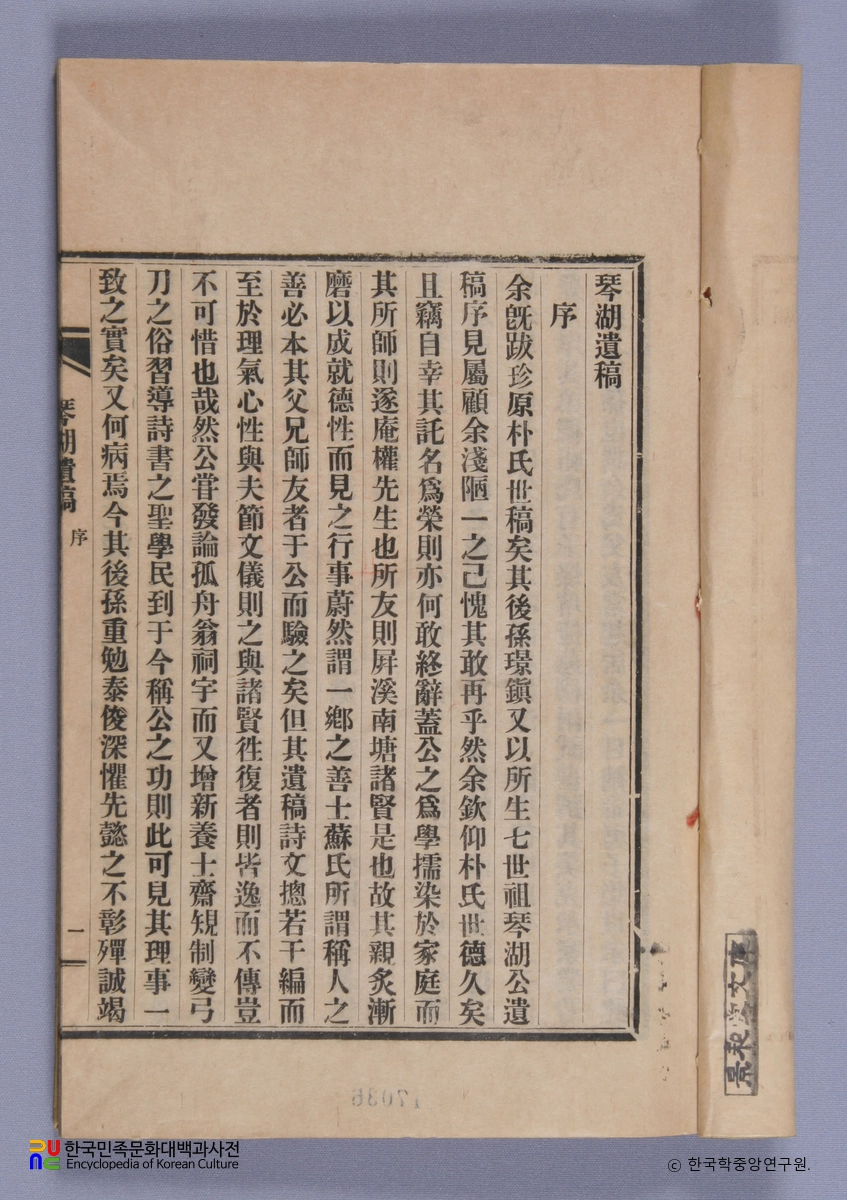 琴湖遺稿
序
余旣跋珍原朴氏世稿矣其後孫璟鎭又以所生七世祖琴湖公遺
稿序見屬顧余淺陋一之已愧其敢再乎然余欽仰朴氏世德久矣
且竊自幸其託名爲榮則亦何敢終辭蓋公之爲學擩染於家庭而
其所師則遂庵權先生也所友則屛溪南塘諸賢是也故其親炙漸
磨以成就德性而見之行事蔚然謂一鄕之善士蘇氏所謂稱人之
善必本其父兄師友者于公而驗之矣但其遺稿詩文摠若干編而
至於理氣心性與夫節文儀則之與諸賢徃復者則皆逸而不傳豈
不可惜也哉然公甞發論孤舟翁祠宇而又增新養士齋䂓制變弓
刀之俗習導詩書之聖學民到于今稱公之功則此可見其理事一
致之實矣又何病焉今其後孫重勉泰俊深懼先懿之不彰殫誠竭
琴湖遺稿 序 一
景和堂文庫
17036
한국민족문화대백과사전
Encyclopedia of Korean Culture
ⓒ 한국학중앙연구원.